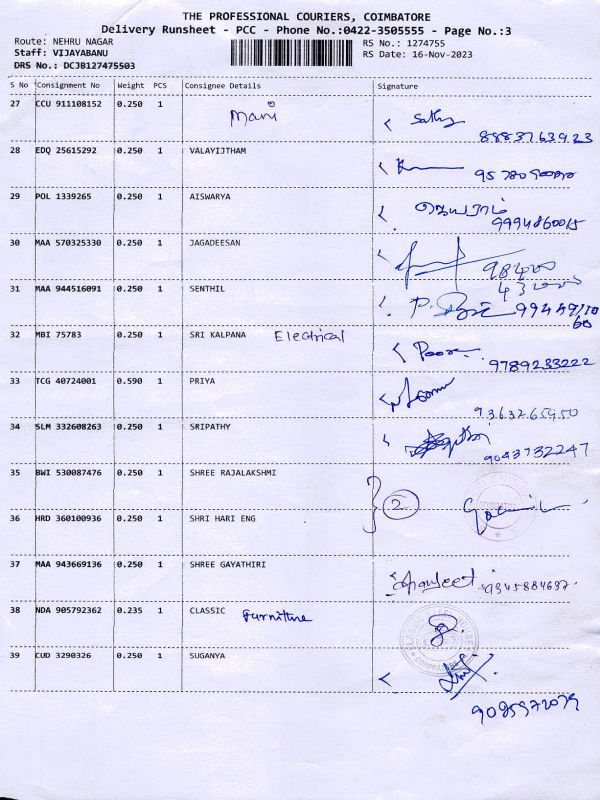 THE PROFESSIONAL COURIERS, COIMBATORE
Delivery Runsheet - PCC - Phone No.:0422-3505555 - Page No.:3
Route: NEHRU NAGAR RS No.: 1274755
Staff: VIJAYABANU RS Date: 16-Nov-2023
DRS No.: DCJB127475503
S No Consignment No Weight PCS Consignee Details Signature
27 CCU 911108152 0.250 1 Mani
8883763923
28 EDQ 25615292 0.250 1 VALAYIJTHAM
29 POL 1339265 0.250 1 AISWARYA
30 MAA 570325330 0.250 1 JAGADEESAN
98400
43200
31 MAA 944516091 0.250 1 SENTHIL
32 MBI 75783 0.250 1 SRI KALPANA Electrical
9789233222
33 TCG 40724001 0.590 1 PRIYA
9363265950
34 SLM 332608263 0.250 1 SRIPATHY
9043732247
35 BWI 530087476 0.250 1 SHREE RAJALAKSHMI
2
36 HRD 360100936 0.250 1 SHRI HARI ENG
37 MAA 943669136 0.250 1 SHREE GAYATHIRI
38 NDA 905792362 0.235 1 CLASSIC Furniture
39 CUD 3290326 0.250 1 SUGANYA
9085972079